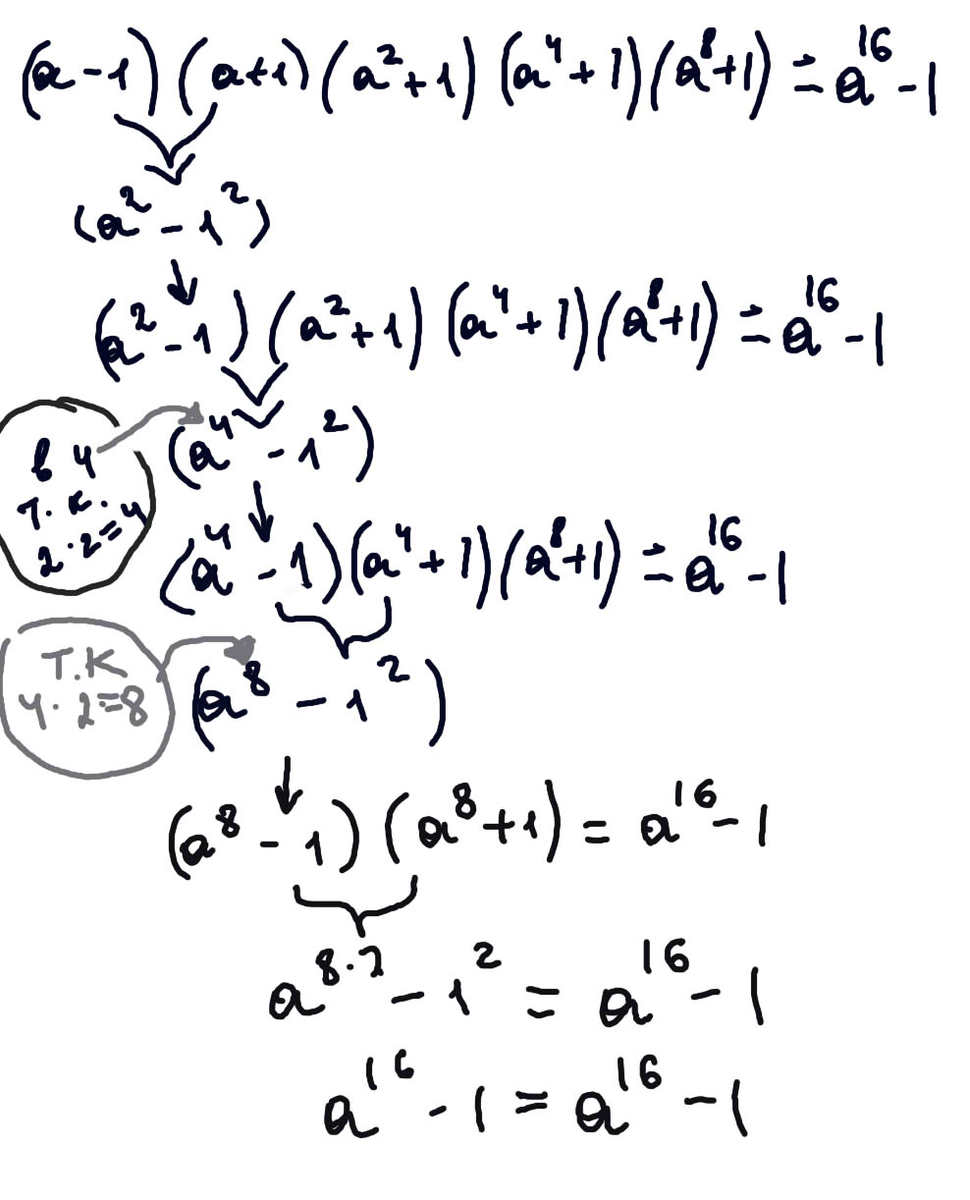 (a-1)(a+1)(a²+1)(a⁴+1)(a⁸+1) = a¹⁶-1
(a²-1²)
(a²-1)(a²+1)(a⁴+1)(a⁸+1) = a¹⁶-1
(a⁴-1²)
в 4
т.к.
2·2=4
(a⁴-1)(a⁴+1)(a⁸+1) = a¹⁶-1
Т.К
4·2=8
(a⁸-1²)
(a⁸-1)(a⁸+1) = a¹⁶-1
a⁸·²-1² = a¹⁶-1
a¹⁶-1 = a¹⁶-1